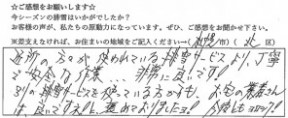 ☆ご感想をお願いします☆
今シーズンの除雪はいかがでしたか？
お客様の声が、私たちの原動力になっています。ぜひ、ご感想をお聞かせ下さい。
※差支えなければ、お住まいの地域をご記入ください→(札幌市)(北区)
近所の方々が使われている除雪サービスより、丁寧
で安全な作業… 非常に良いです！
別の除雪サービスを使っている方々も、お宅の業者さん
は良いですネ！と褒めておりましたヨ！